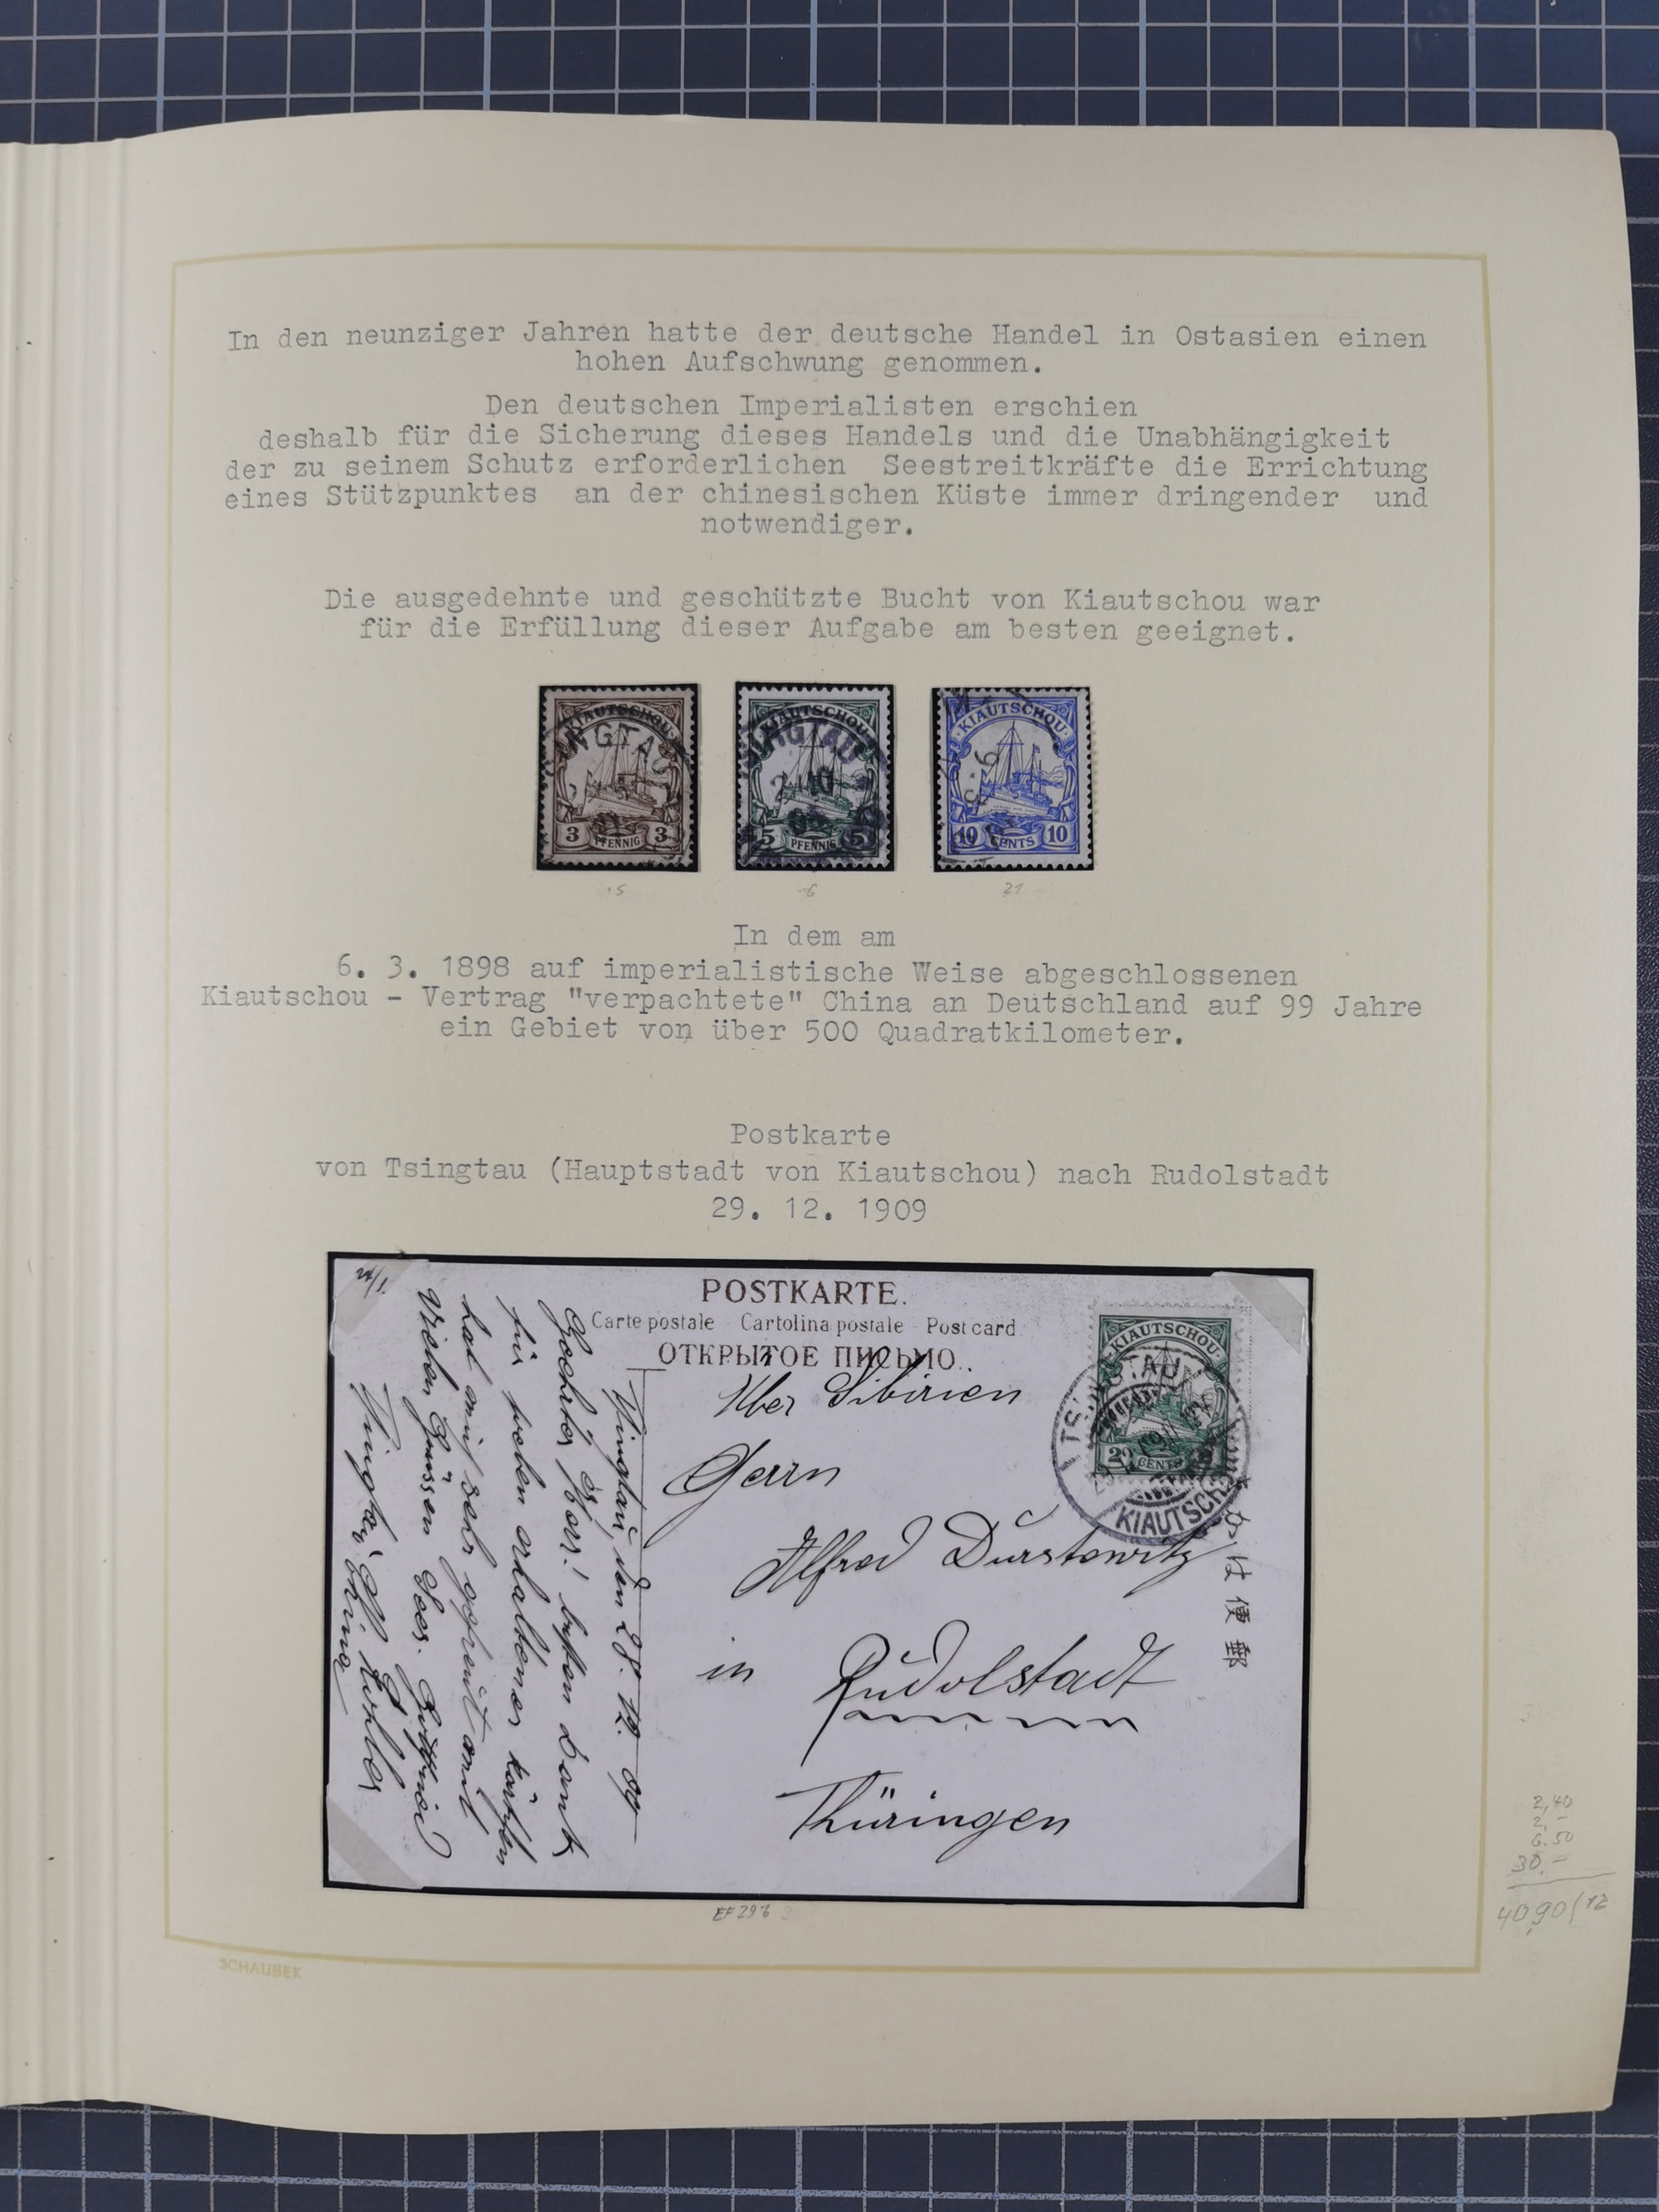 In den neunziger Jahren hatte der deutsche Handel in Ostasien einen
hohen Aufschwung genommen.
Den deutschen Imperialisten erschien
deshalb für die Sicherung dieses Handels und die Unabhängigkeit
der zu seinem Schutz erforderlichen Seestreitkräfte die Errichtung
eines Stützpunktes an der chinesischen Küste immer dringender und
notwendiger.
Die ausgedehnte und geschützte Bucht von Kiautschou war
für die Erfüllung dieser Aufgabe am besten geeignet.
KIAUTSCHOU
3 PFENNIG 3
KIAUTSCHOU
5 PFENNIG 5
KIAUTSCHOU
10 CENTS 10
21
In dem am
6. 3. 1898 auf imperialistische Weise abgeschlossenen
Kiautschou - Vertrag "verpachtete" China an Deutschland auf 99 Jahre
ein Gebiet von über 500 Quadratkilometer.
Postkarte
von Tsingtau (Hauptstadt von Kiautschou) nach Rudolstadt
29. 12. 1909
POSTKARTE.
Carte postale Cartolina postale Post card
ОТКРЫТОЕ ПИСЬМО.
Über Sibirien
Herrn
Alfred
in
Rudolstadt
Thüringen
KIAUTSCHOU
CENTS
Tsingtau, den 28. 12. 09
Geehrter Herr! besten Dank
für soeben erhaltenes Kärtchen
hat mich sehr gefreut mit
Vielen Grüssen
Tsingtau China
郵便は
2,40
2,-
6.50
30.-
40,90
SCHAUBEK